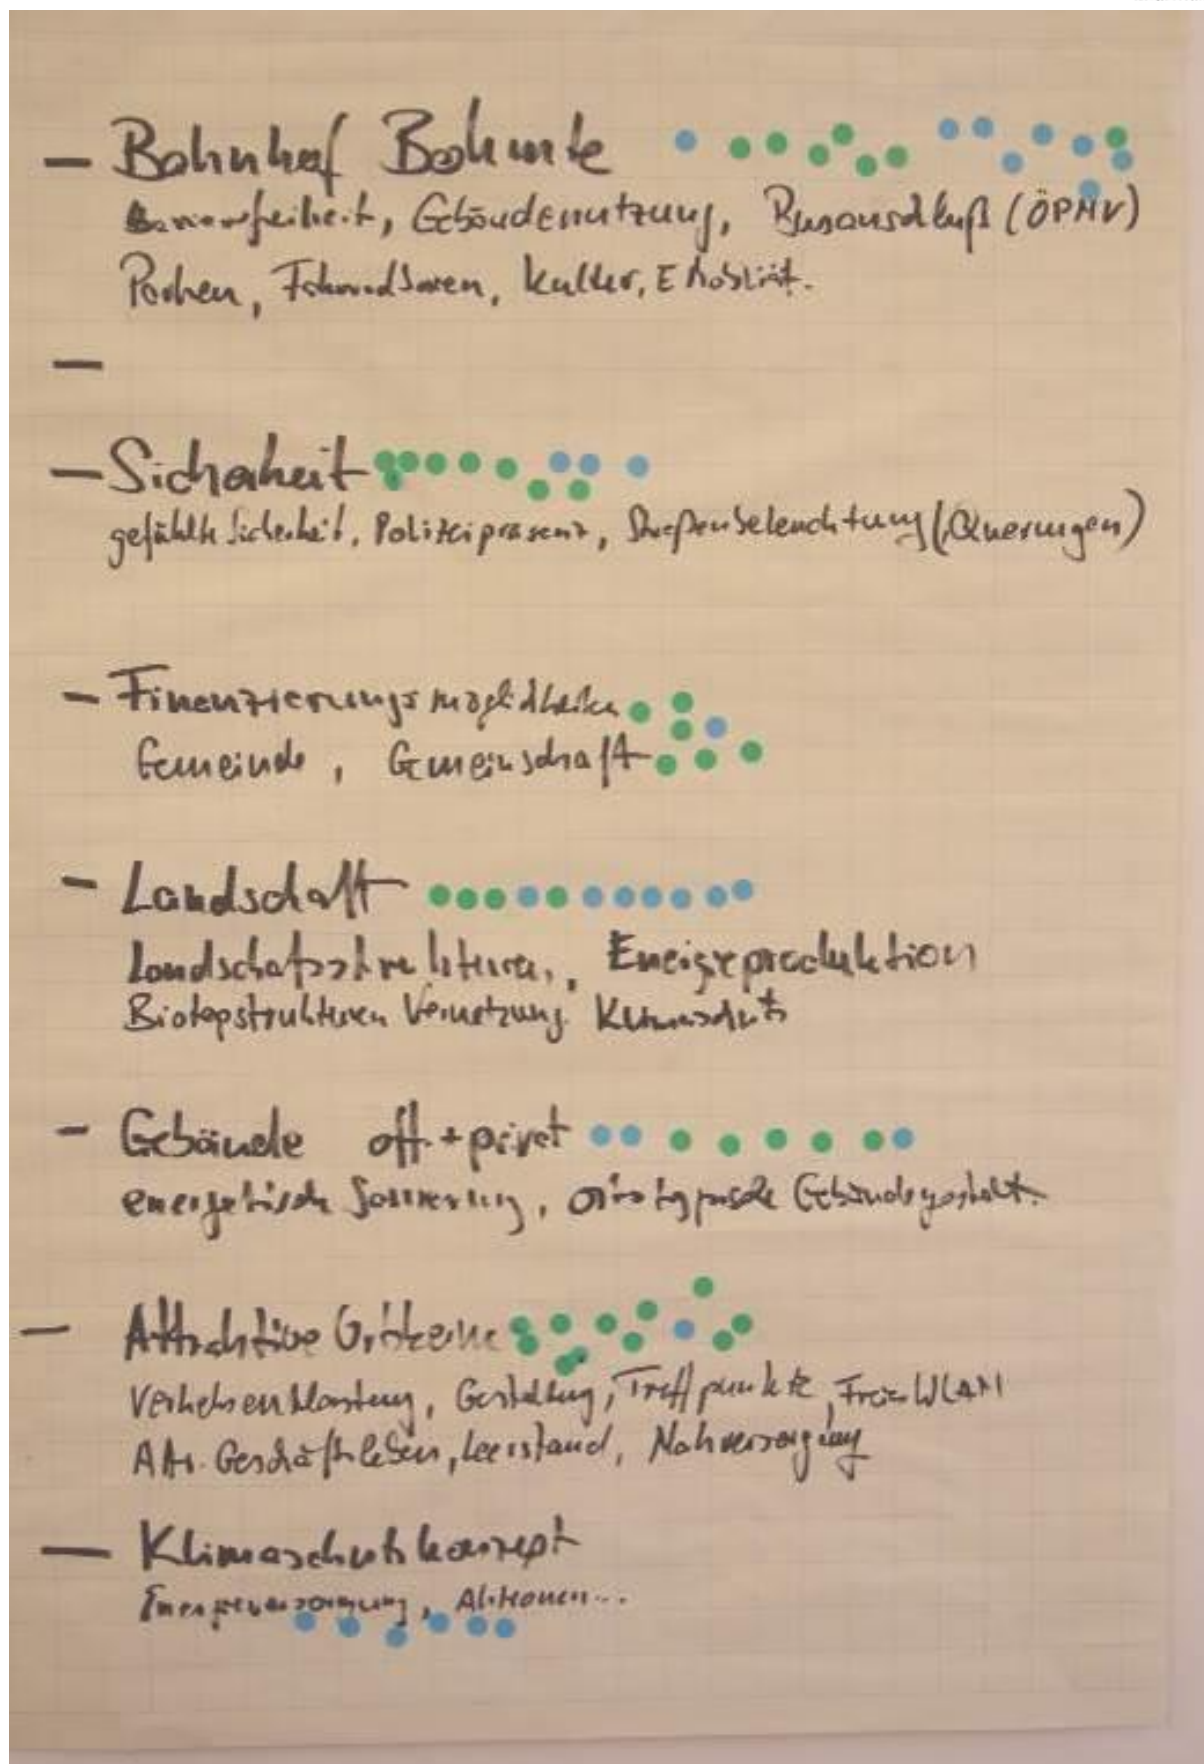 — Bahnhof Bohmte
Barrierefreiheit, Gebäudenutzung, Busanschluß (ÖPNV)
Parken, Fahrradboxen, Kultur, E Mobilität.
—
— Sicherheit
gefühlte Sicherheit, Polizeipräsenz, Straßenbeleuchtung (Querungen)
— Finanzierungsmöglichkeiten
Gemeinde, Gemeinschaft
— Landschaft
Landschaftsstrukturen, Energieproduktion
Biotopstrukturen Vernetzung Klimaschutz
— Gebäude öff. + privat
energetische Sanierung, ortstypische Gebäudegestalt.
— Attraktive Ortskerne
Verkehrsentlastung, Gestaltung, Treffpunkte, Freies WLAN
Attr. Geschäftsleben, Leerstand, Nahversorgung
— Klimaschutzkonzept
Energieversorgung, Aktionen...